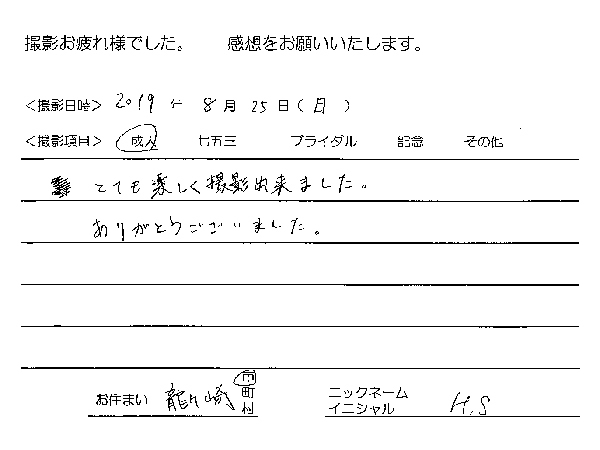 撮影お疲れ様でした。 感想をお願いいたします。
＜撮影日時＞ 2019年 8月 25日（日）
＜撮影項目＞ 成人 七五三 ブライダル 記念 その他
とても楽しく撮影出来ました。
ありがとうございました。
お住まい 龍ヶ崎 市町村
ニックネーム
イニシャル H.S